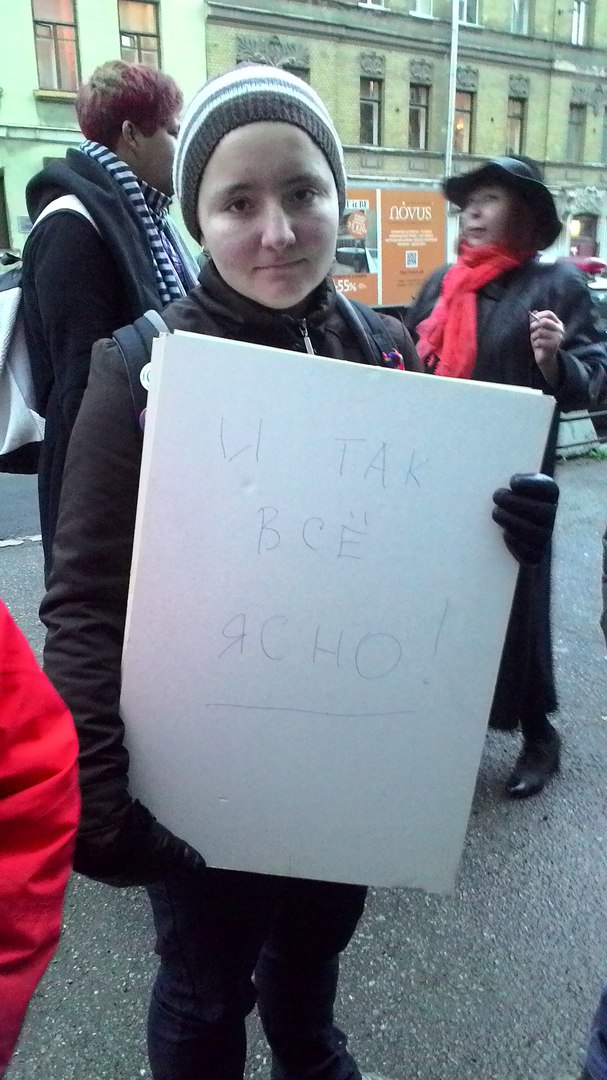 И ТАК
ВСЁ
ЯСНО!
NOVUS
-55%